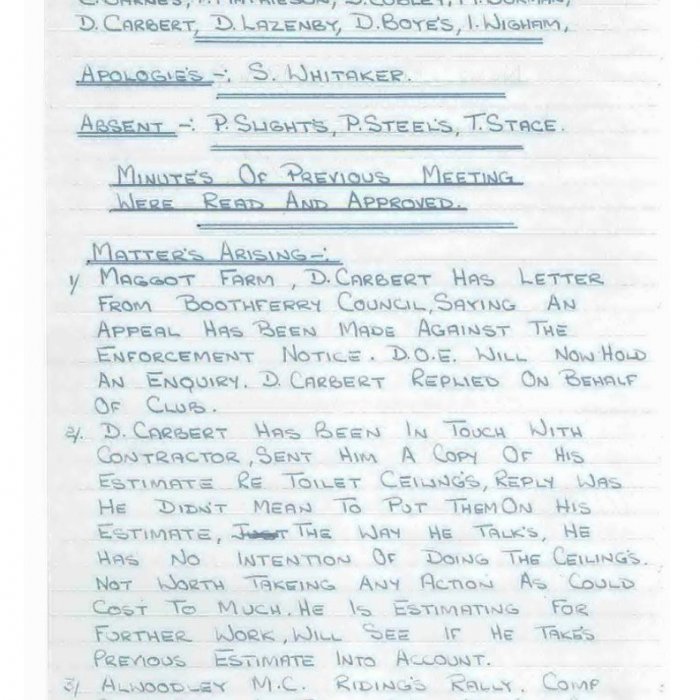 D. CARBERT, D. LAZENBY, D. BOYE'S, I. WIGHAM,
APOLOGIE'S -: S. WHITAKER.
ABSENT -: P. SLIGHT'S, P. STEEL'S, T. STACE.
MINUTE'S OF PREVIOUS MEETING
WERE READ AND APPROVED.
MATTER'S ARISING -:
1/ MAGGOT FARM, D. CARBERT HAS LETTER
FROM BOOTHFERRY COUNCIL, SAYING AN
APPEAL HAS BEEN MADE AGAINST THE
ENFORCEMENT NOTICE. D.O.E. WILL NOW HOLD
AN ENQUIRY. D. CARBERT REPLIED ON BEHALF
OF CLUB.
2/. D. CARBERT HAS BEEN IN TOUCH WITH
CONTRACTOR, SENT HIM A COPY OF HIS
ESTIMATE RE TOILET CEILING'S, REPLY WAS
HE DIDN'T MEAN TO PUT THEM ON HIS
ESTIMATE, JUST THE WAY HE TALK'S, HE
HAS NO INTENTION OF DOING THE CEILING'S.
NOT WORTH TAKEING ANY ACTION AS COULD
COST TO MUCH. HE IS ESTIMATING FOR
FURTHER WORK, WILL SEE IF HE TAKE'S
PREVIOUS ESTIMATE INTO ACCOUNT.
3/ ALWOODLEY M.C. RIDING'S RALLY. COMP